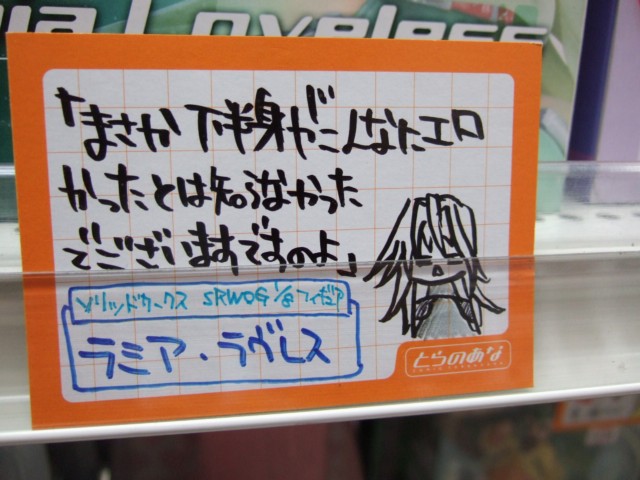 Loveless
「まさか下半身がこんなにエロ
かったとは知らなかった
でございますですのよ」
ソリッドワークス SRWOG 1/8フィギュア
ラミア・ラヴレス
とらのあな